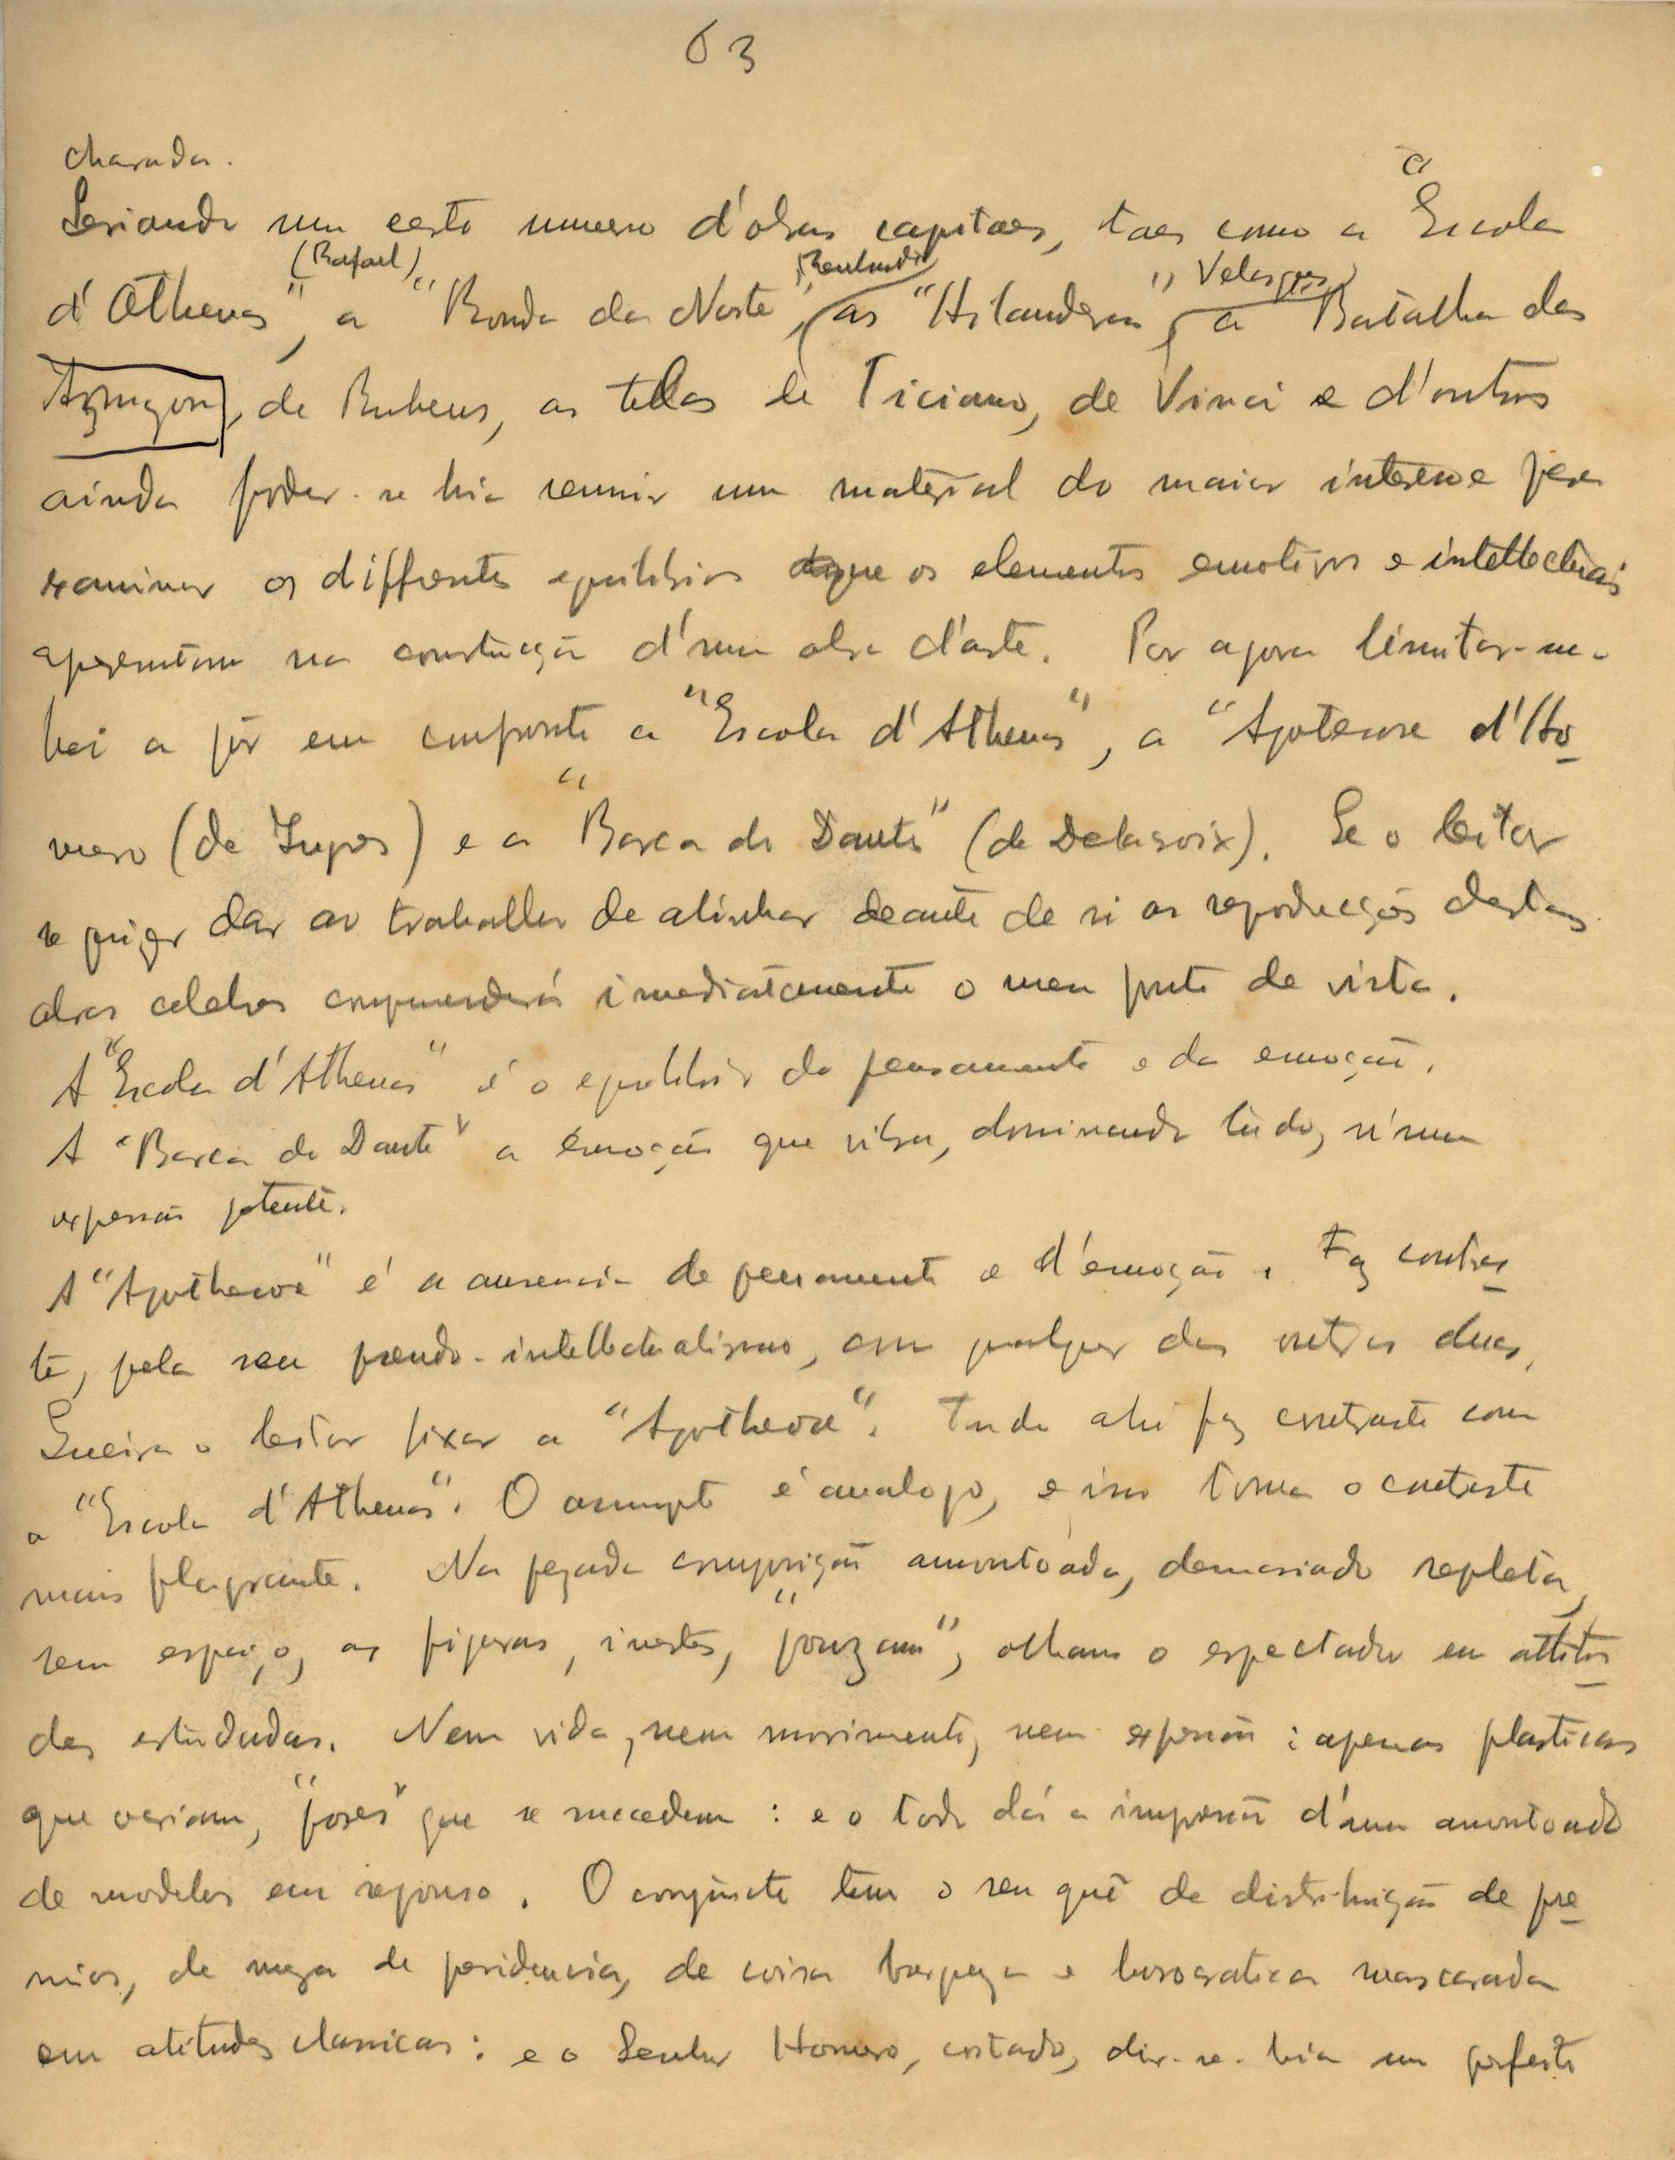 63
charada.
Seriando um certo numero d'obras capitaes, taes como a "Escola
d'Athenas" (Rafael), a "Ronda da Noite" (Rembrandt), as "Hilanderas" (Velasques), a Batalha das
Amazonas, de Rubens, as tellas de Ticiano, de Vinci e d'outros
ainda poder-se-hia reunir um material do maior interesse para
examinar os differentes equilibrios que os elementos emotivos e intellectuais
apresentam na construcção d'uma obra d'arte. Por agora limitar-me-
hei a pôr em confronto a "Escola d'Athenas", a "Apoteose d'Ho
mero (de Ingres) e a "Barca de Dante" (de Delacroix). Se o leitor
se quizer dar ao trabalho de alinhar deante de si as reproducções destas
obras celebres comprehenderá immediatamente o meu ponto de vista.
A "Escola d'Athenas" é o equilibrio do pensamento e da emoção.
A "Barca de Dante" a emoção que vibra, dominando tudo, n'uma
expressão potente.
A "Apotheose" é a ausencia de pensamento e d'emoção. Faz contras
te, pelo seu pseudo-intellectualismo, com qualquer das outras duas.
Queira o leitor fixar a "Apotheose". Tudo ahi faz contraste com
a "Escola d'Athenas". O assumpto é analogo, e isso torna o contraste
mais flagrante. Na pezada composição amontoada, demasiado repleta,
sem espaço, as figuras, inertes, "pouzam", olham o espectador em attitu
des estudadas. Nem vida, nem movimento, nem expressão: apenas plasticas
que variam, "poses" que se succedem: e o todo dá a impressão d'um amontoado
de modelos em repouso. O conjuncto tem o seu quê de distribuição de pre
mios, de meza de presidencia, de coisa burgueza e burocratica mascarada
em atitudes classicas: e o Senhor Homero, sentado, dir-se-hia um perfeito